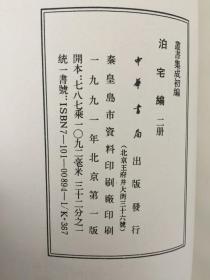 叢書集成初編
泊宅編 二册
中華書局出版發行
(北京王府井大街三十六號)
秦皇島市資料印刷廠印刷
一九九一年北京第一版
開本:七八七乘一〇九二毫米 三十二分之一
統一書號:ISBN7—101—00894—1/K·367